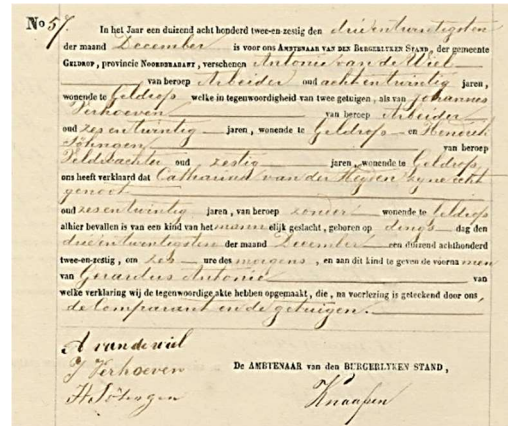 No 57.
In het Jaar een duizend acht honderd twee-en-zestig den drieentwintigsten
der maand December is voor ons AMBTENAAR VAN DEN BURGERLYKEN STAND, der gemeente
GELDROP, provincie NOORDBRABANT, verschenen Antonie van de Wiel
van beroep Arbeider oud achtentwintig jaren,
wonende te Geldrop welke in tegenwoordigheid van twee getuigen, als van Johannes
Verhoeven van beroep Arbeider
oud zesentwintig jaren, wonende te Geldrop en Hendrik
van beroep
Veldwachter oud zestig jaren, wonende te Geldrop
ons heeft verklaard dat Catharina van der Heyden zyne echt
genoot
oud zesentwintig jaren, van beroep zonder wonende te Geldrop
alhier bevallen is van een kind van het mannelijk geslacht, geboren op dings dag den
drieentwintigsten der maand December een duizend achthonderd
twee-en-zestig, om zes ure des morgens, en aan dit kind te geven de voornamen
van Gerardus Antonie van
welke verklaring wij de tegenwoordige akte hebben opgemaakt, die, na voorlezing is geteekend door ons,
de Comparant en de getuigen.
A van de wiel
J Verhoeven
De AMBTENAAR van den BURGERLYKEN STAND,
H
Knaapen